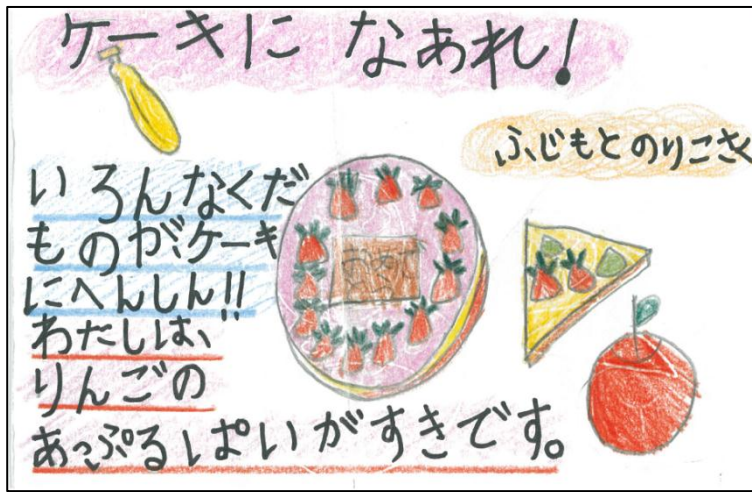 ケーキに なあれ!
ふじもとのりこさく
いろんなくだ
ものが、ケーキ
にへんしん!!
わたしは、
りんごの
あっぷるぱいがすきです。